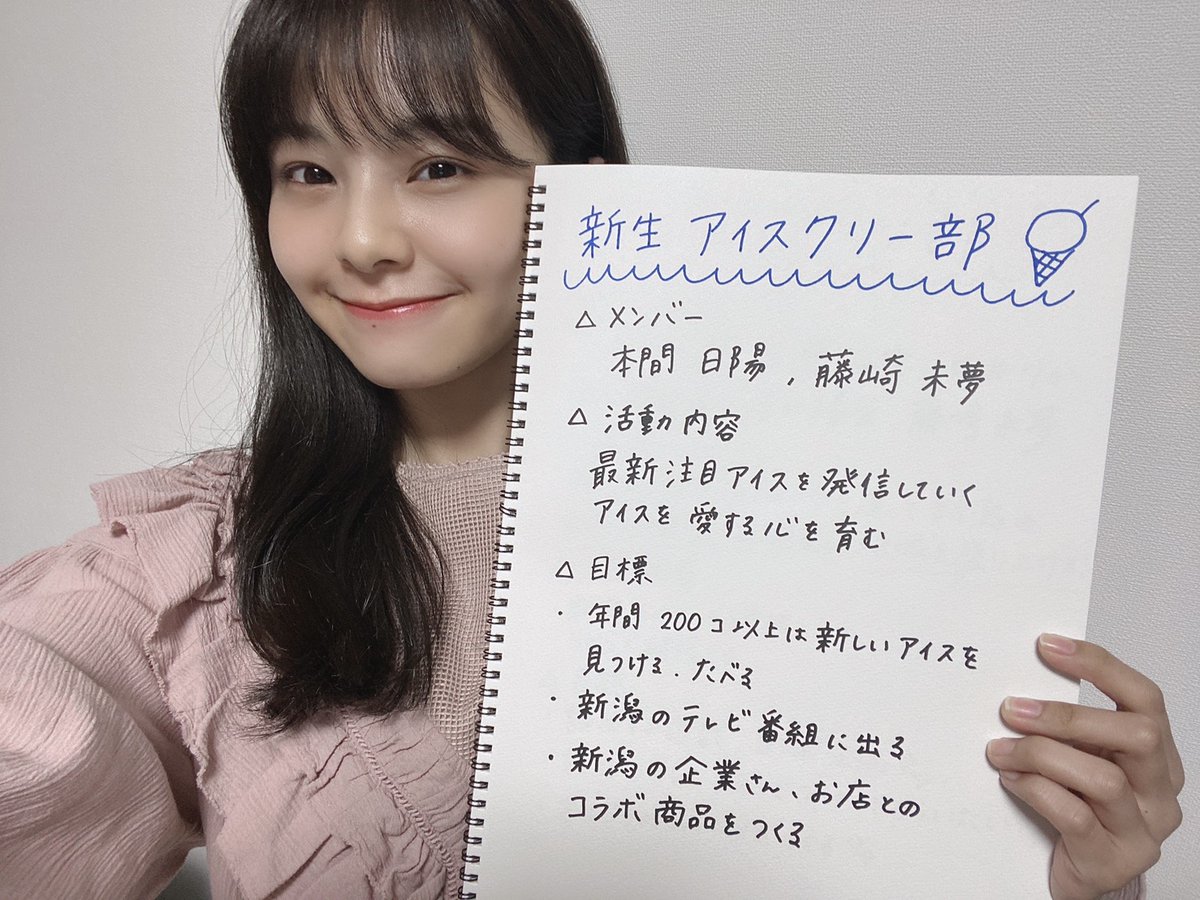 新生 アイスクリー部
△ メンバー
本間 日陽 , 藤崎 未夢
△ 活動内容
最新注目アイスを発信していく
アイスを愛する心を育む
△ 目標
・ 年間 200コ以上は新しいアイスを
見つける．たべる
・ 新潟のテレビ番組に出る
・ 新潟の企業さん、お店との
コラボ商品をつくる